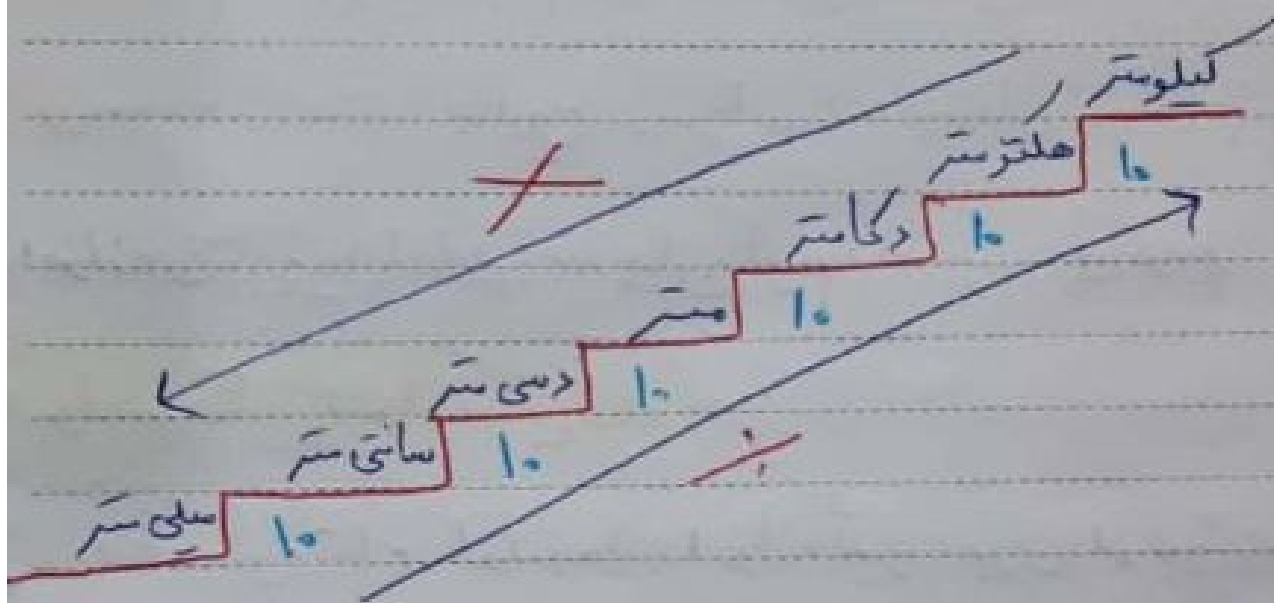 کیلومتر
هکتومتر
۱۰
×
دکامتر
۱۰
متر
۱۰
دسی متر
۱۰
سانتی متر
۱۰
÷
میلی متر
۱۰